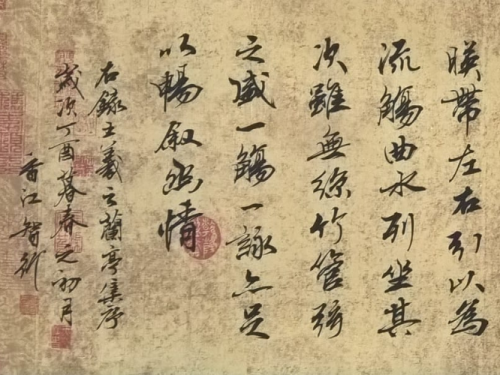 暎帶左右引以為
流觴曲水列坐其
次雖無絲竹管弦
之盛一觴一詠亦足
以暢敘幽情
右錄王羲之蘭亭集序
歲次丁酉暮春之初月
香江智行